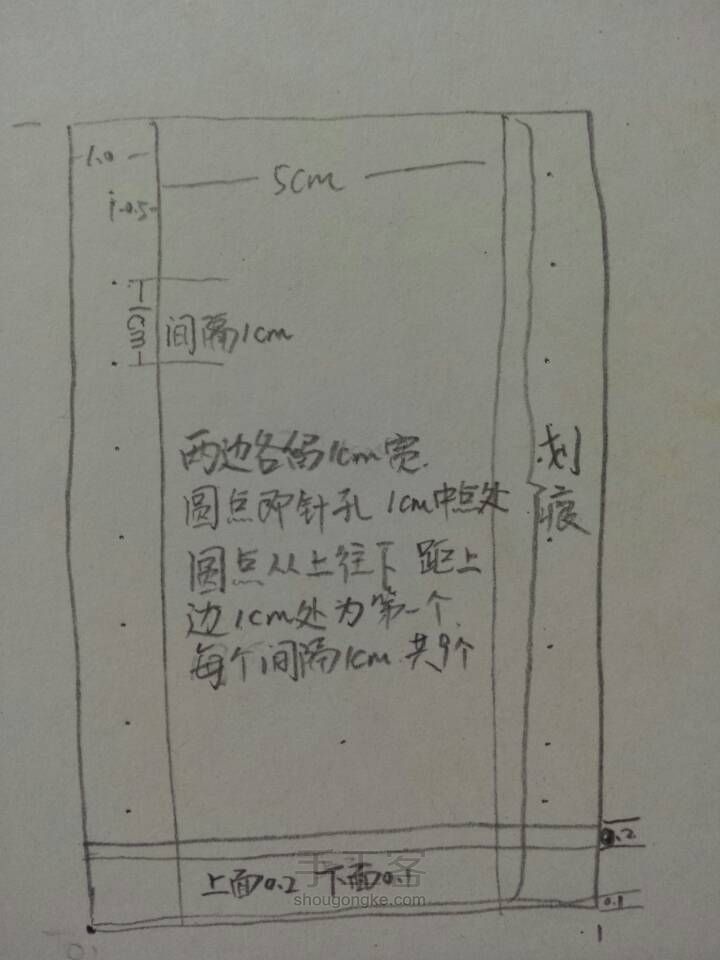 1.0
5cm
0.5
1cm
间隔1cm
两边各偏1cm宽
圆点即针孔 1cm中点处
圆点从上往下 距上
边1cm处为第一个
每个间隔1cm 共9个
划痕
0.2
上面0.2 下面0.1
手工客
shougongke.com
0.1